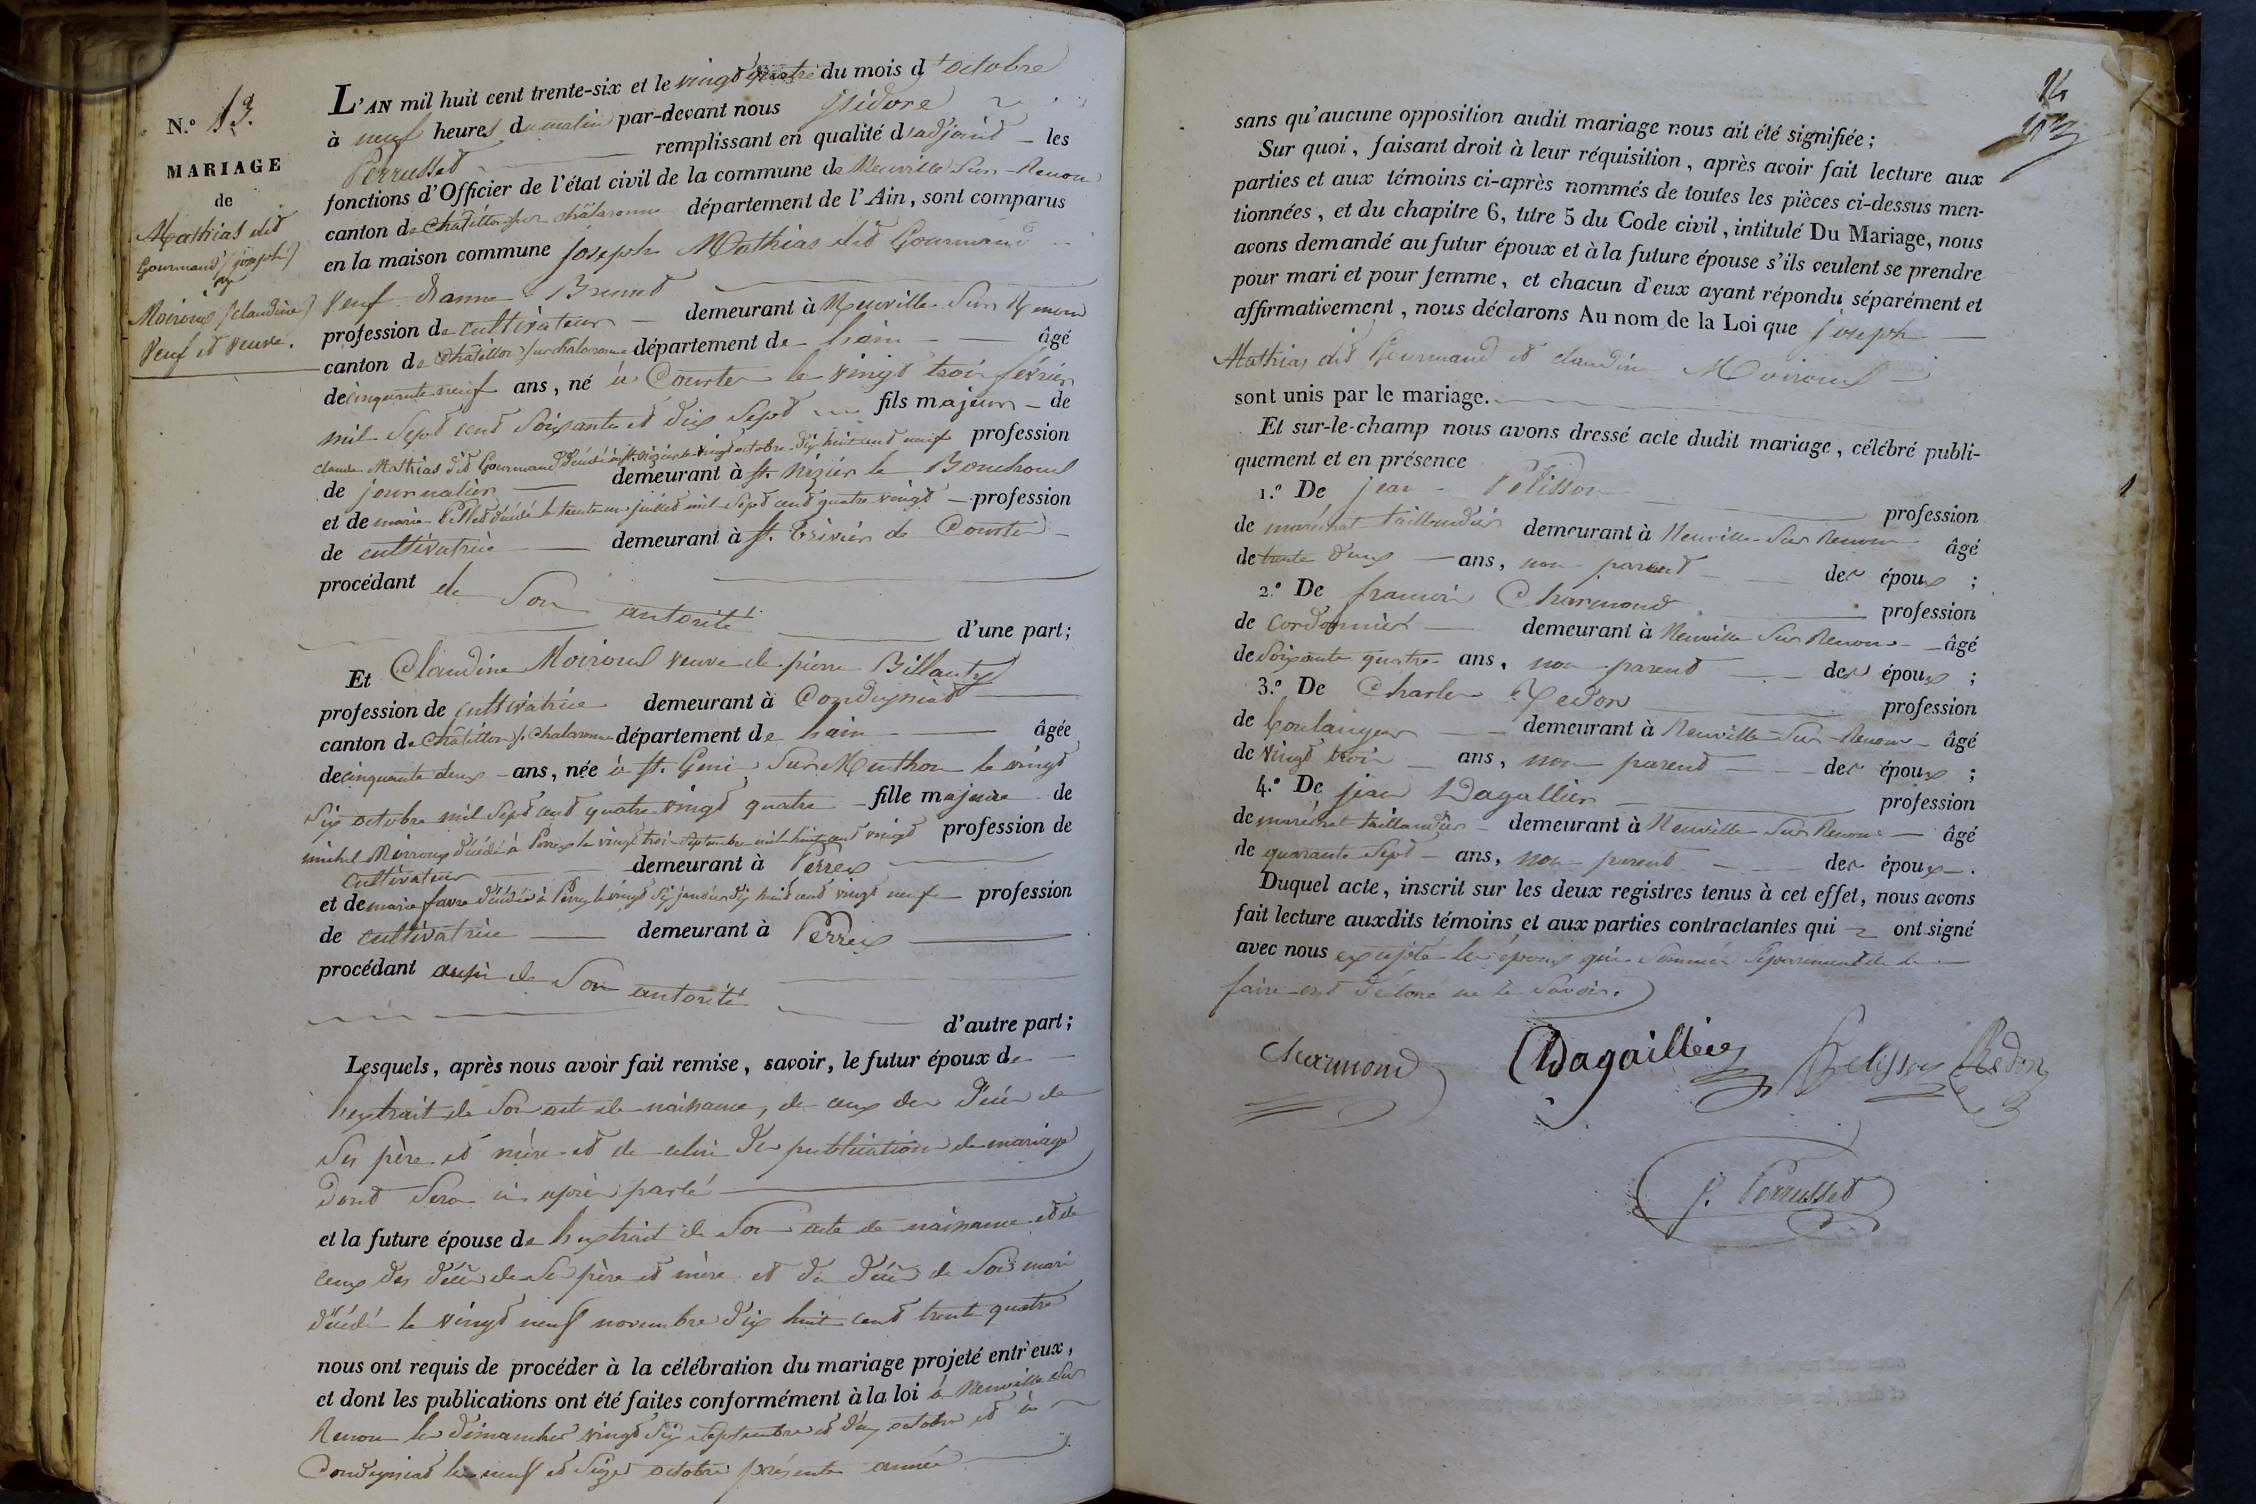 N.º 13.
MARIAGE
de
Mathias dit
Gourmand (joseph)
Moiroud (claudine)
Veuf et veuve.
L'AN mil huit cent trente-six et le vingt quatre du mois d'octobre
à neuf heures du matin par-devant nous isidore
Perrusset remplissant en qualité d'adjoint les
fonctions d'Officier de l'état civil de la commune de Neuville Sur Renon
canton de Châtillon sur chalaronne département de l'Ain, sont comparus
en la maison commune joseph Mathias dit Gourmand
Veuf d'anne Brunet
profession de cultivateur demeurant à Neuville Sur Renon
canton de Châtillon sur chalaronne département de lain âgé
de cinquante neuf ans, né à Courter le vingt trois février
mil Sept cent Soixante et dix Sept fils majeur de
claude Mathias dit Gourmand décédé à St. Nizier le vingt octobre dix huit cent neuf profession
de journalier demeurant à St. Nizier le Bouchoud
et de marie décédé le trente un juillet mil Sept cent quatre vingt profession
de cultivatrice demeurant à St. Trivier de Courter
procédant de Son autorité
d'une part;
Et Claudine Moiroud veuve de pierre Billaudy
profession de cultivatrice demeurant à Condeyssiat
canton de Châtillon s. Chalaronne département de lain âgée
de cinquante deux ans, née à St. Geni Sur Menthon le vingt
Six octobre mil Sept cent quatre vingt quatre fille majeure de
michel Moiroux décédé à Perrex le vingt trois Septembre mil huit cent vingt profession de
cultivateur demeurant à Perrex
et de marie favre décédée à Perrex le vingt Six janvier dix huit cent vingt neuf profession
de cultivatrice demeurant à Perrex
procédant aussi de Son autorité
d'autre part;
Lesquels, après nous avoir fait remise, savoir, le futur époux de
l'extrait de Son acte de naissance, de ceux des décès de
Ses père et mère et de celui de publication de mariage
Dont Sera ci après parlé
et la future épouse de l'extrait de Son acte de naissance et de
ceux des décès de Ses père et mère et du décès de Son mari
décédé le vingt neuf novembre dix huit cent trente quatre
nous ont requis de procéder à la célébration du mariage projeté entr'eux,
et dont les publications ont été faites conformément à la loi à Neuville Sur
Renon les dimanches vingt Six Septembre et deux octobre et à
Condeyssiat les neuf et Seize octobre présente année
sans qu'aucune opposition audit mariage nous ait été signifiée;
Sur quoi, faisant droit à leur réquisition, après avoir fait lecture aux
parties et aux témoins ci-après nommés de toutes les pièces ci-dessus men-
tionnées, et du chapitre 6, titre 5 du Code civil, intitulé Du Mariage, nous
avons demandé au futur époux et à la future épouse s'ils veulent se prendre
pour mari et pour femme, et chacun d'eux ayant répondu séparément et
affirmativement, nous déclarons Au nom de la Loi que joseph
Mathias dit Gourmand et claudine Moiroud
sont unis par le mariage.
Et sur-le-champ nous avons dressé acte dudit mariage, célébré publi-
quement et en présence
1.º De jean Pelisson profession
de maréchal taillandier demeurant à Neuville Sur Renon âgé
de trente deux ans, non parent des époux ;
2.º De francois Charmond profession
de cordonnier demeurant à Neuville Sur Renon âgé
de Soixante quatre ans, non parent des époux ;
3.º De Charles Redon profession
de boulanger demeurant à Neuville Sur Renon âgé
de vingt trois ans, non parent des époux ;
4.º De jean Dagallier profession
de maréchal taillandier demeurant à Neuville Sur Renon âgé
de quarante Sept ans, non parent des époux.
Duquel acte, inscrit sur les deux registres tenus à cet effet, nous avons
fait lecture auxdits témoins et aux parties contractantes qui ont signé
avec nous excepté les époux qui Sommés Séparement de le
faire ont déclaré ne le Savoir.
Charmond Dagaillier Pelisson Redon
J. Perrusset